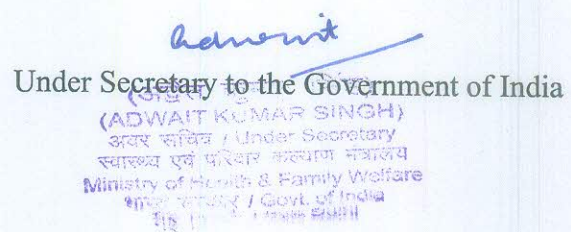 Adwait
Under Secretary to the Government of India
(ADWAIT KUMAR SINGH)
अवर सचिव / Under Secretary
स्वास्थ्य एवं परिवार कल्याण मंत्रालय
Ministry of Health & Family Welfare
भारत सरकार / Govt. of India